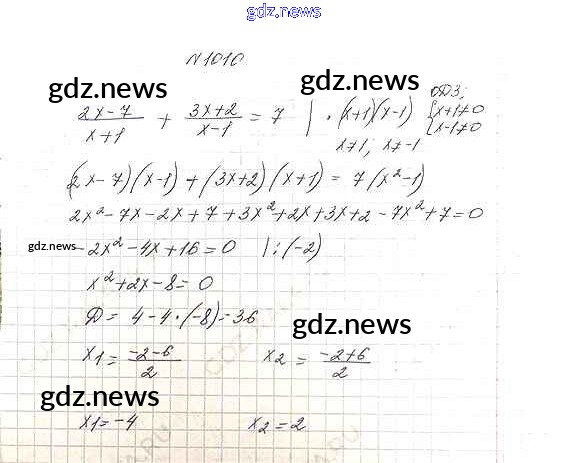 gdz.news
N1010
gdz.news gdz.news
(2x-7)/(x+1) + (3x+2)/(x-1) = 7 | · (x+1)(x-1) ОДЗ: {x+1≠0 {x-1≠0
x≠1; x≠-1
(2x-7)(x-1) + (3x+2)(x+1) = 7(x²-1)
2x²-7x-2x+7+3x²+2x+3x+2-7x²+7=0
gdz.news -2x²-4x+16=0 |:(-2)
x²+2x-8=0
Д= 4-4·(-8)=36
gdz.news
x₁= (-2-6)/2 x₂ = (-2+6)/2
gdz.news
x₁=-4 x₂=2